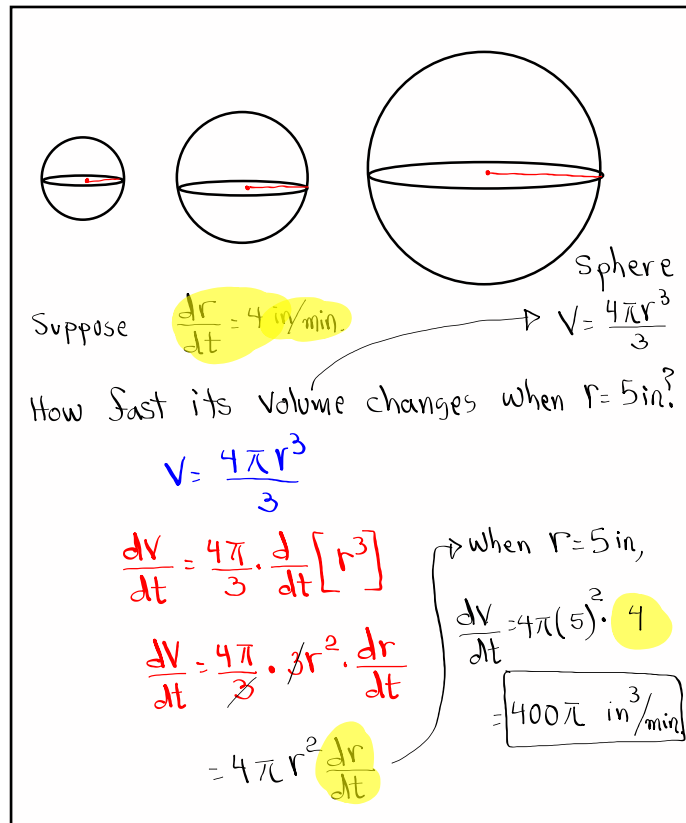 Sphere
Suppose dr/dt = 4 in/min.
V = 4πr³/3
How fast its volume changes when r = 5in?
V = 4πr³/3
dV/dt = 4π/3 · d/dt [r³]
dV/dt = 4π/3 · 3r² · dr/dt
= 4πr² dr/dt
when r = 5in,
dV/dt = 4π(5)² · 4
= 400π in³/min.